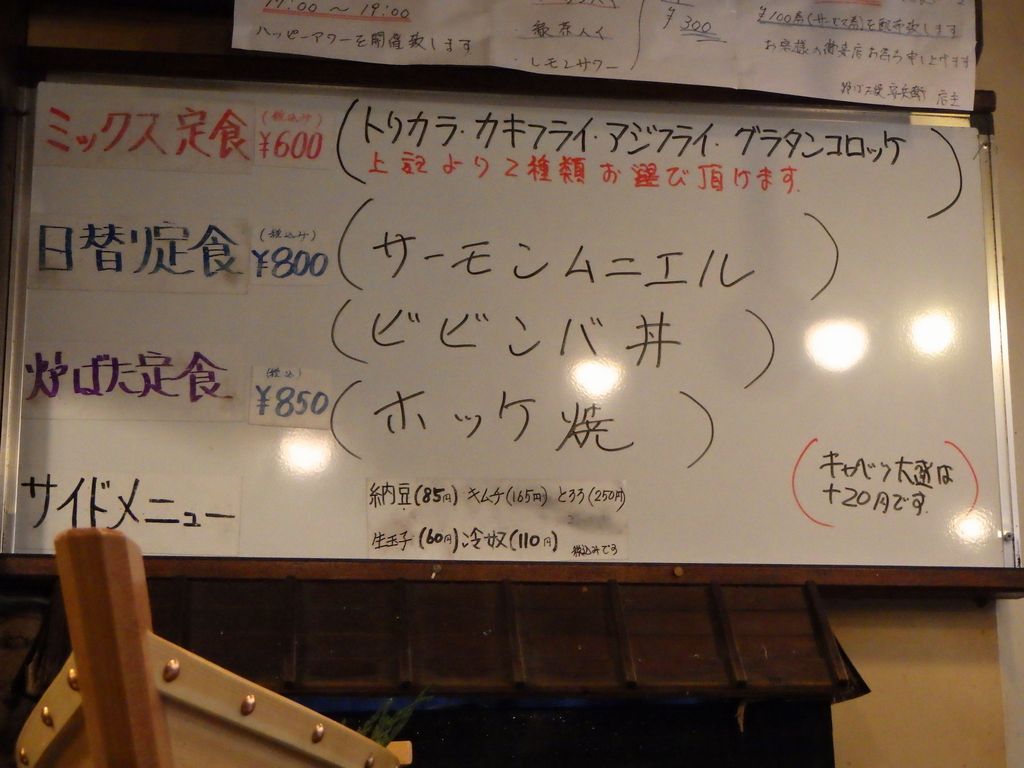 17:00 〜 19:00
ハッピーアワーを開催致します
・レモンサワー
¥300
¥100券(サービス券)を配布致します
店主
ミックス定食 (税込み) ¥600 (トリカラ・カキフライ・アジフライ・グラタンコロッケ)
上記より2種類お選び頂けます。
日替り定食 (税込み) ¥800 (サーモンムニエル)
(ビビンバ丼)
炉ばた定食 (税込) ¥850 (ホッケ焼)
サイドメニュー
納豆(85円) キムチ(165円) とろろ(250円)
生玉子(60円) 冷奴(110円) 税込みです
(キャベツ大盛は
+20円です。)